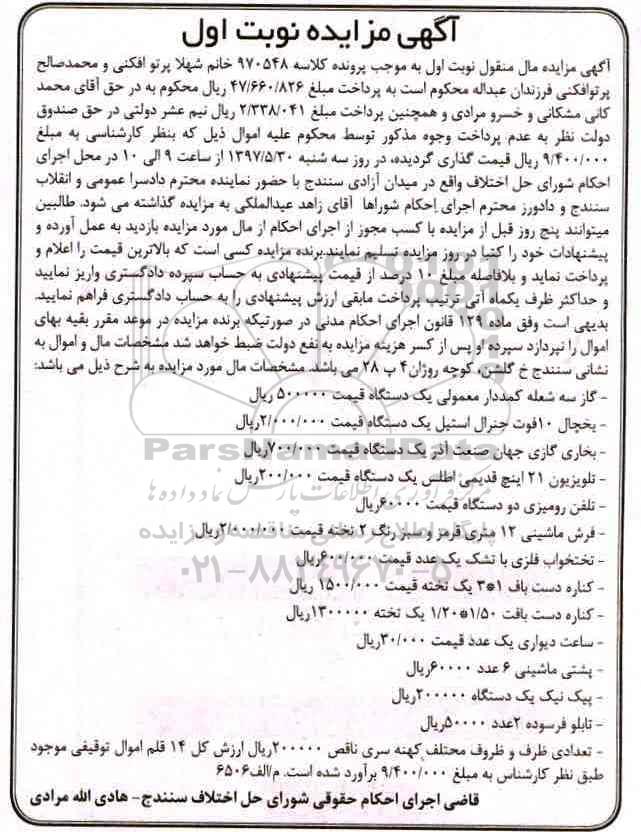 آگهی مزایده نوبت اول
آگهی مزایده مال منقول نوبت اول به موجب پرونده کلاسه ۹۷۰۵۴۸ خانم شهلا پرتو افکنی و محمدصالح
پرتوافکنی فرزندان عبداله محکوم است به پرداخت مبلغ ۴۷/۶۶۰/۸۲۶ ریال محکوم به در حق آقای محمد
کانی مشکانی و خسرو مرادی و همچنین پرداخت مبلغ ۲/۳۳۸/۰۴۱ ریال نیم عشر دولتی در حق صندوق
دولت نظر به عدم پرداخت وجوه مذکور توسط محکوم علیه اموال ذیل که بنظر کارشناسی به مبلغ
۹/۴۰۰/۰۰۰ ریال قیمت گذاری گردیده، در روز سه شنبه ۱۳۹۷/۵/۳۰ از ساعت ۹ الی ۱۰ در محل اجرای
احکام شورای حل اختلاف واقع در میدان آزادی سنندج با حضور نماینده محترم دادسرا عمومی و انقلاب
سنندج و دادورز محترم اجرای احکام شوراها آقای زاهد عبدالملکی به مزایده گذاشته می شود. طالبین
میتوانند پنج روز قبل از مزایده با کسب مجوز از اجرای احکام از مال مورد مزایده بازدید به عمل آورده و
پیشنهادات خود را کتبا در روز مزایده تسلیم نمایند.برنده مزایده کسی است که بالاترین قیمت را اعلام و
پرداخت نماید و بلافاصله مبلغ ۱۰ درصد از قیمت پیشنهادی به حساب سپرده دادگستری واریز نمایید
و حداکثر ظرف یکماه آتی ترتیب پرداخت مابقی ارزش پیشنهادی را به حساب دادگستری فراهم نمایید.
بدیهی است وفق ماده ۱۲۹ قانون اجرای احکام مدنی در صورتیکه برنده مزایده در موعد مقرر بقیه بهای
اموال را نپردازد سپرده او پس از کسر هزینه مزایده به نفع دولت ضبط خواهد شد مشخصات مال و اموال به
نشانی سنندج خ گلشن، کوچه روژان۴ پ ۲۸ می باشد. مشخصات مال مورد مزایده به شرح ذیل می باشد:
- گاز سه شعله کمددار معمولی یک دستگاه قیمت ۵۰۰۰۰۰ ریال
- یخچال ۱۰فوت جنرال استیل یک دستگاه قیمت ۲/۰۰۰/۰۰۰ریال
- بخاری گازی جهان صنعت آذر یک دستگاه قیمت ۷۰۰/۰۰۰ریال
- تلویزیون ۲۱ اینچ قدیمی اطلس یک دستگاه قیمت ۲۰۰/۰۰۰ریال
- تلفن رومیزی دو دستگاه قیمت ۶۰۰۰۰ریال
- فرش ماشینی ۱۲ متری قرمز و سبز رنگ ۲ تخته قیمت ۲/۰۰۰/۰۰۰ریال
- تختخواب فلزی با تشک یک عدد قیمت ۶۰۰/۰۰۰ریال
- کناره دست باف ۱*۳ یک تخته قیمت ۱۵۰۰/۰۰۰ ریال
- کناره دست بافت ۱/۵۰*۱/۲۰ یک تخته ۱۳۰۰۰۰۰ریال
- ساعت دیواری یک عدد قیمت ۳۰/۰۰۰ریال
- پشتی ماشینی ۶ عدد ۶۰۰۰۰ریال
- پیک نیک یک دستگاه ۲۰۰۰۰۰ریال
- تابلو فرسوده ۲عدد ۵۰۰۰۰ریال
- تعدادی ظرف و ظروف مختلف کهنه سری ناقص ۲۰۰۰۰۰ریال ارزش کل ۱۴ قلم اموال توقیفی موجود
طبق نظر کارشناس به مبلغ ۹/۴۰۰/۰۰۰ برآورد شده است. م/الف۶۵۰۶
قاضی اجرای احکام حقوقی شورای حل اختلاف سنندج- هادی الله مرادی
ParsNamadData
مرکز فرآوری اطلاعات پارس نماد داده ها
پایگاه اطلاع رسانی مناقصه و مزایده
۰۲۱-۸۸۳۴۹۶۷۰-۵